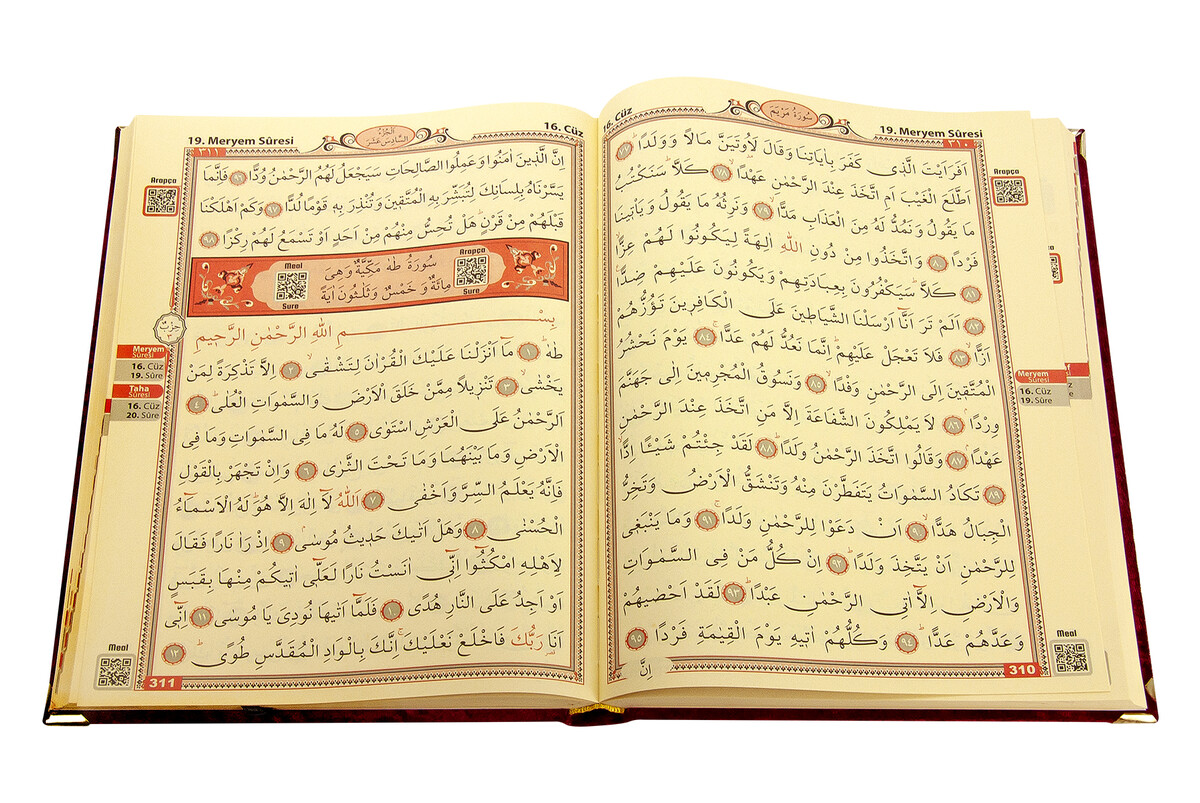 16. Cüz
سُورَةُ مَرْيَمَ
19. Meryem Sûresi
٣١٠
Arapça
اَفَرَاَيْتَ الَّذٖى كَفَرَ بِاٰيَاتِنَا وَقَالَ لَاُو۫تَيَنَّ مَالًا وَوَلَدًاؕ ﴿٧٧﴾
اَطَّلَعَ الْغَيْبَ اَمِ اتَّخَذَ عِنْدَ الرَّحْمٰنِ عَهْدًاۙ ﴿٧٨﴾ كَلَّاؕ سَنَكْتُبُ
مَا يَقُولُ وَنَمُدُّ لَهُ مِنَ الْعَذَابِ مَدًّاۙ ﴿٧٩﴾ وَنَرِثُهُ مَا يَقُولُ وَيَأْتٖينَا
فَرْدًا ﴿٨٠﴾ وَاتَّخَذُوا مِنْ دُونِ اللّٰهِ اٰلِهَةً لِيَكُونُوا لَهُمْ عِزًّاۙ
﴿٨١﴾ كَلَّاؕ سَيَكْفُرُونَ بِعِبَادَتِهِمْ وَيَكُونُونَ عَلَيْهِمْ ضِدًّا۟
﴿٨٢﴾ اَلَمْ تَرَ اَنَّٓا اَرْسَلْنَا الشَّيَاطٖينَ عَلَى الْكَافِرٖينَ تَؤُزُّهُمْ
اَزًّاۙ ﴿٨٣﴾ فَلَا تَعْجَلْ عَلَيْهِمْؕ اِنَّمَا نَعُدُّ لَهُمْ عَدًّاۚ ﴿٨٤﴾ يَوْمَ نَحْشُرُ
الْمُتَّقٖينَ اِلَى الرَّحْمٰنِ وَفْدًاۙ ﴿٨٥﴾ وَنَسُوقُ الْمُجْرِمٖينَ اِلٰى جَهَنَّمَ
وِرْدًاۘ ﴿٨٦﴾ لَا يَمْلِكُونَ الشَّفَاعَةَ اِلَّا مَنِ اتَّخَذَ عِنْدَ الرَّحْمٰنِ
عَهْدًاۘ ﴿٨٧﴾ وَقَالُوا اتَّخَذَ الرَّحْمٰنُ وَلَدًاؕ ﴿٨٨﴾ لَقَدْ جِئْتُمْ شَيْـًٔا اِدًّاۙ
﴿٨٩﴾ تَكَادُ السَّمٰوَاتُ يَتَفَطَّرْنَ مِنْهُ وَتَنْشَقُّ الْاَرْضُ وَتَخِرُّ
الْجِبَالُ هَدًّاۙ ﴿٩٠﴾ اَنْ دَعَوْا لِلرَّحْمٰنِ وَلَدًاۚ ﴿٩١﴾ وَمَا يَنْبَغٖى
لِلرَّحْمٰنِ اَنْ يَتَّخِذَ وَلَدًاؕ ﴿٩٢﴾ اِنْ كُلُّ مَنْ فِى السَّمٰوَاتِ
وَالْاَرْضِ اِلَّٓا اٰتِى الرَّحْمٰنِ عَبْدًاؕ ﴿٩٣﴾ لَقَدْ اَحْصٰيهُمْ
وَعَدَّهُمْ عَدًّاؕ ﴿٩٤﴾ وَكُلُّهُمْ اٰتٖيهِ يَوْمَ الْقِيٰمَةِ فَرْدًا ﴿٩٥﴾
اِنَّ
310
Meryem
Sûresi
16. Cüz
19. Sûre
Meal
19. Meryem Sûresi
اَلْجُزْءُ
السَّادِسَ عَشَرَ
16. Cüz
٣١١
Arapça
اِنَّ الَّذٖينَ اٰمَنُوا وَعَمِلُوا الصَّالِحَاتِ سَيَجْعَلُ لَهُمُ الرَّحْمٰنُ وُدًّا ﴿٩٦﴾ فَاِنَّمَا
يَسَّرْنَاهُ بِلِسَانِكَ لِتُبَشِّرَ بِهِ الْمُتَّقٖينَ وَتُنْذِرَ بِهٖ قَوْمًا لُدًّا ﴿٩٧﴾ وَكَمْ اَهْلَكْنَا
قَبْلَهُمْ مِنْ قَرْنٍؕ هَلْ تُحِسُّ مِنْهُمْ مِنْ اَحَدٍ اَوْ تَسْمَعُ لَهُمْ رِكْزًا ﴿٩٨﴾
Arapça
Sure
سُورَةُ طٰهٰ مَكِّيَّةٌ وَهِىَ
مِائَةٌ وَ خَمْسٌ وَثَلٰثُونَ اٰيَةً
Meal
Sure
بِسْمِ اللّٰهِ الرَّحْمٰنِ الرَّحٖيمِ
طٰهٰۜ ﴿١﴾ مَٓا اَنْزَلْنَا عَلَيْكَ الْقُرْاٰنَ لِتَشْقٰىۙ ﴿٢﴾ اِلَّا تَذْكِرَةً لِمَنْ
يَخْشٰىۙ ﴿٣﴾ تَنْزٖيلًا مِمَّنْ خَلَقَ الْاَرْضَ وَالسَّمٰوَاتِ الْعُلٰىؕ ﴿٤﴾
اَلرَّحْمٰنُ عَلَى الْعَرْشِ اسْتَوٰى ﴿٥﴾ لَهُ مَا فِى السَّمٰوَاتِ وَمَا فِى
الْاَرْضِ وَمَا بَيْنَهُمَا وَمَا تَحْتَ الثَّرٰى ﴿٦﴾ وَاِنْ تَجْهَرْ بِالْقَوْلِ
فَاِنَّهُ يَعْلَمُ السِّرَّ وَاَخْفٰى ﴿٧﴾ اَللّٰهُ لَٓا اِلٰهَ اِلَّا هُوَؕ لَهُ الْاَسْمَٓاءُ
الْحُسْنٰى ﴿٨﴾ وَهَلْ اَتٰيكَ حَدٖيثُ مُوسٰىۘ ﴿٩﴾ اِذْ رَاٰ نَارًا فَقَالَ
لِاَهْلِهِ امْكُثُٓوا اِنّٖٓى اٰنَسْتُ نَارًا لَعَلّٖٓى اٰتٖيكُمْ مِنْهَا بِقَبَسٍ
اَوْ اَجِدُ عَلَى النَّارِ هُدًى ﴿١٠﴾ فَلَمَّٓا اَتٰيهَا نُودِىَ يَا مُوسٰى ﴿١١﴾ اِنّٖٓى
اَنَا۬ رَبُّكَ فَاخْلَعْ نَعْلَيْكَۚ اِنَّكَ بِالْوَادِ الْمُقَدَّسِ طُوًىؕ ﴿١٢﴾
حِزْبٌ
Meryem
Sûresi
16. Cüz
19. Sûre
Taha
Sûresi
16. Cüz
20. Sûre
Meal
311